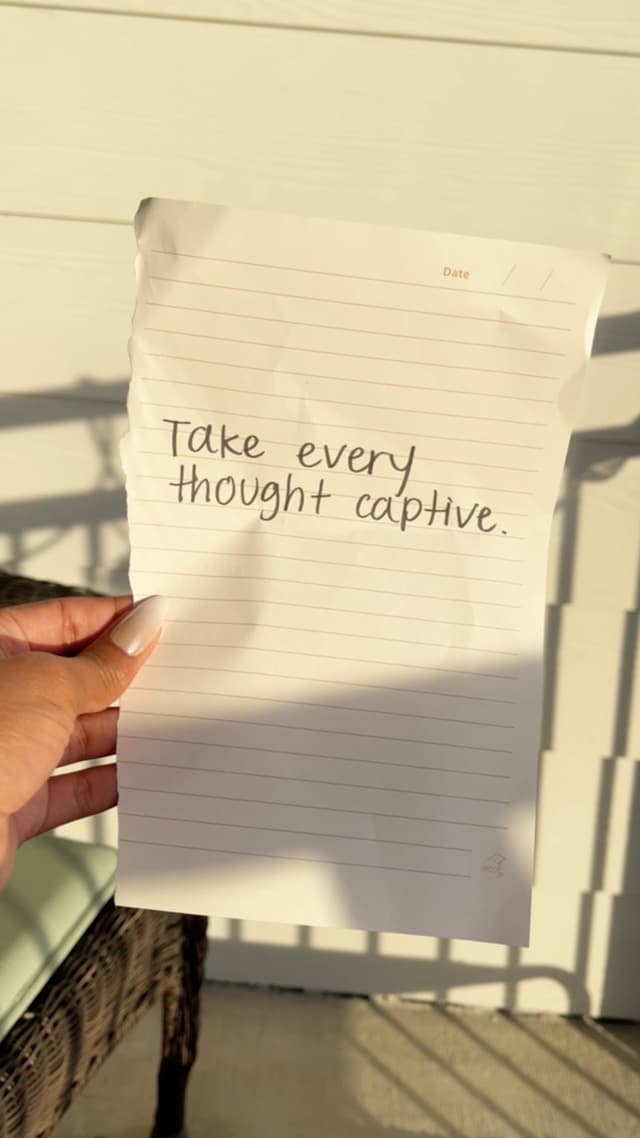 Date / /
Take every
thought captive.